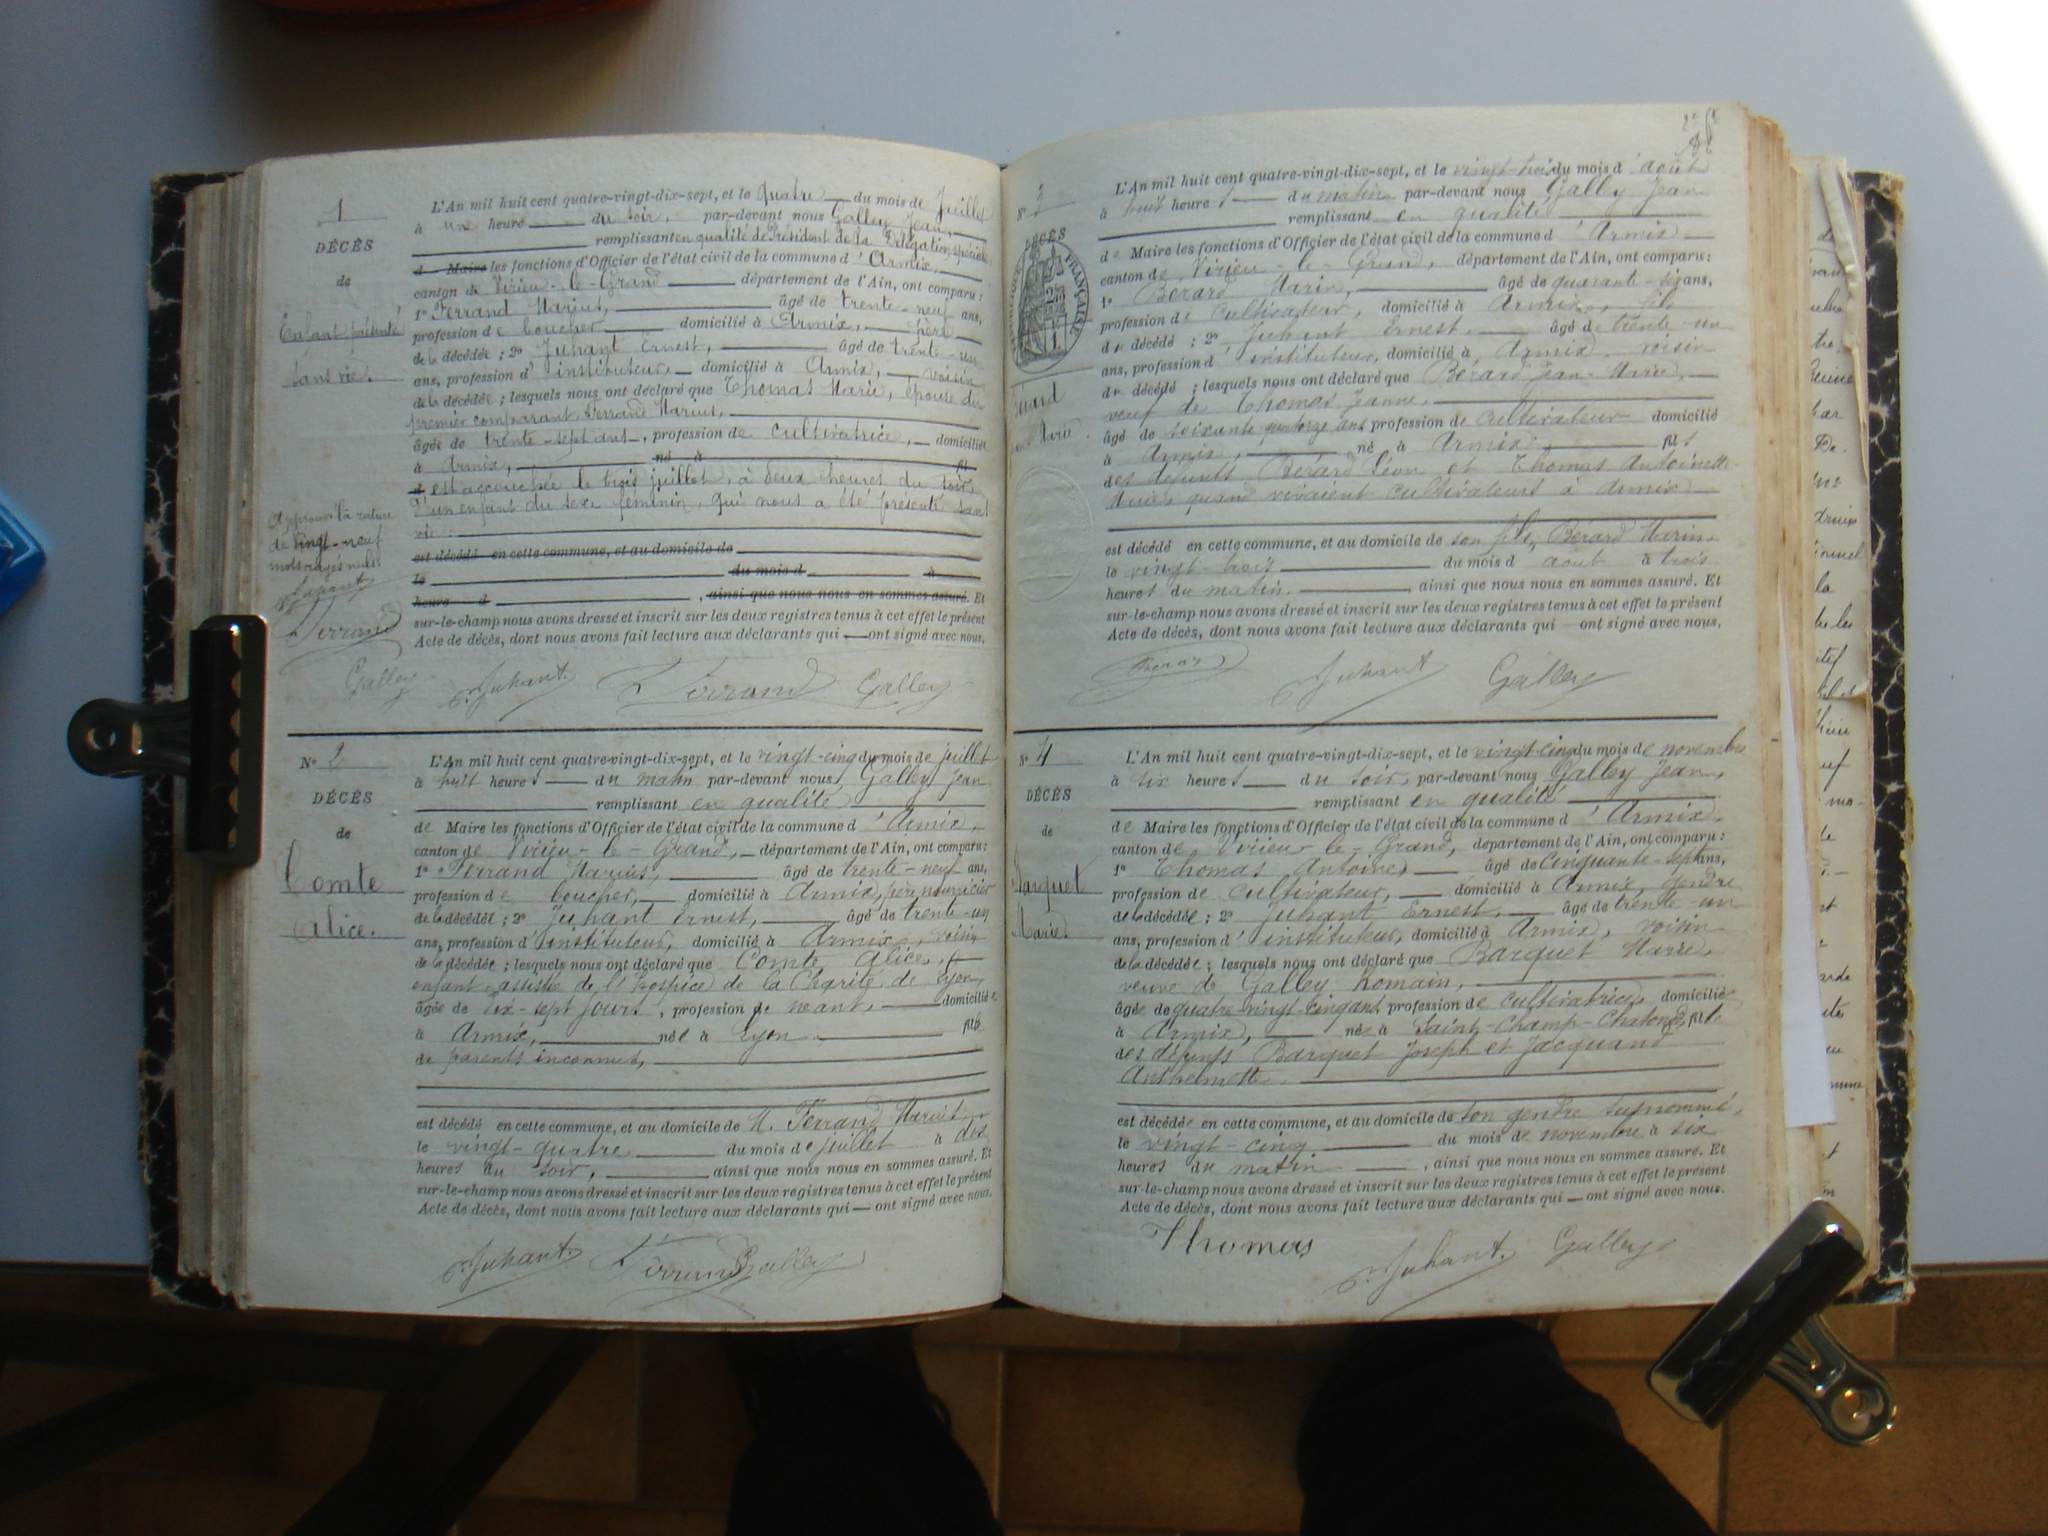 1
DÉCÈS
de
Enfant présenté
sans vie.
L'An mil huit cent quatre-vingt-dix-sept, et le quatre du mois de Juillet
à une heure du soir, par-devant nous Galley Jean,
remplissant en qualité de Président de la Délégation spéciale
d Maire les fonctions d'Officier de l'état civil de la commune d'Armix,
canton de Virieu-le-Grand département de l'Ain, ont comparu :
1º Ferrand Marius, âgé de trente-neuf ans,
profession de boucher domicilié à Armix, père
de la décédée ; 2º Juhant Ernest, âgé de trente-un
ans, profession d'instituteur, domicilié à Armix, voisin
de la décédée ; lesquels nous ont déclaré que Thomas Marie, épouse du
premier comparant, Ferrand Marius,
âgée de trente-sept ans, profession de cultivatrice, domiciliée
à Armix, né à fil
d est accouchée le trois juillet, à deux heures du soir,
d'un enfant du sexe féminin, qui nous a été présenté sans
vie.
est décédé en cette commune, et au domicile de
le du mois d à
heure d , ainsi que nous nous en sommes assuré. Et
sur-le-champ nous avons dressé et inscrit sur les deux registres tenus à cet effet le présent
Acte de décès, dont nous avons fait lecture aux déclarants qui ont signé avec nous.
Approuvé la rature
de vingt-neuf
mots rayés nuls.
Juhant
Ferrand
Galley
Juhant Ferrand Galley
Nº 2
DÉCÈS
de
Comte
Alice.
L'An mil huit cent quatre-vingt-dix-sept, et le vingt-cinq du mois de juillet
à huit heures du matin par-devant nous, Galley Jean
remplissant en qualité
de Maire les fonctions d'Officier de l'état civil de la commune d'Armix,
canton de Virieu-le-Grand, département de l'Ain, ont comparu :
1º Ferrand Marius, âgé de trente-neuf ans,
profession de boucher, domicilié à Armix, père nourricier
de la décédée ; 2º Juhant Ernest, âgé de trente-un
ans, profession d'instituteur, domicilié à Armix, voisin
de la décédée ; lesquels nous ont déclaré que Comte Alice,
enfant assistée de l'hospice de la Charité de Lyon,
âgée de dix-sept jours, profession de néant, domiciliée
à Armix, née à Lyon fille
de parents inconnus,
est décédé en cette commune, et au domicile de M. Ferrand Marius,
le vingt-quatre du mois de juillet à dix
heures du soir, ainsi que nous nous en sommes assuré. Et
sur-le-champ nous avons dressé et inscrit sur les deux registres tenus à cet effet le présent
Acte de décès, dont nous avons fait lecture aux déclarants qui ont signé avec nous.
Juhant. Ferrand Galley
Nº 3
DÉCÈS
RÉPUBLIQUE FRANÇAISE
Marie
L'An mil huit cent quatre-vingt-dix-sept, et le vingt-trois du mois d'août
à huit heures du matin par-devant nous, Galley Jean
remplissant en qualité
de Maire les fonctions d'Officier de l'état civil de la commune d'Armix
canton de Virieu-le-Grand, département de l'Ain, ont comparu :
1º Bérard Marin, âgé de quarante-six ans,
profession de cultivateur, domicilié à Armix, fils
du décédé ; 2º Juhant Ernest, âgé de trente-un
ans, profession d'instituteur, domicilié à Armix, voisin
du décédé ; lesquels nous ont déclaré que Bérard Jean-Marie,
veuf de Thomas Jeanne,
âgé de soixante-quatorze ans profession de cultivateur domicilié
à Armix, né à Armix, fils
des défunts Bérard Léon et Thomas Antoinette
Marie quand vivaient cultivateurs à Armix
est décédé en cette commune, et au domicile de son fils, Bérard Marin,
le vingt-trois du mois d août à trois
heures du matin. ainsi que nous nous en sommes assuré. Et
sur-le-champ nous avons dressé et inscrit sur les deux registres tenus à cet effet le présent
Acte de décès, dont nous avons fait lecture aux déclarants qui ont signé avec nous.
Juhant Galley
Nº 4
DÉCÈS
de
Barquet
Marie.
L'An mil huit cent quatre-vingt-dix-sept, et le vingt-cinq du mois de novembre
à six heures du soir, par-devant nous Galley Jean,
remplissant en qualité
de Maire les fonctions d'Officier de l'état civil de la commune d'Armix,
canton de Virieu-le-Grand, département de l'Ain, ont comparu :
1º Thomas Antoine, âgé de cinquante-sept ans,
profession de cultivateur, domicilié à Armix, gendre
de la décédée ; 2º Juhant Ernest, âgé de trente-un
ans, profession d'instituteur, domicilié à Armix, voisin
de la décédée ; lesquels nous ont déclaré que Barquet Marie,
veuve de Galley Romain,
âgée de quatre-vingt-cinq ans, profession de cultivatrice, domiciliée
à Armix, née à Saint-Champ-Chatonod, fille
des défunts Barquet Joseph et Jacquand
Anthelmette
est décédée en cette commune, et au domicile de son gendre susnommé,
le vingt-cinq du mois de novembre à six
heures du matin , ainsi que nous nous en sommes assuré. Et
sur-le-champ nous avons dressé et inscrit sur les deux registres tenus à cet effet le présent
Acte de décès, dont nous avons fait lecture aux déclarants qui ont signé avec nous.
Thomas Juhant. Galley